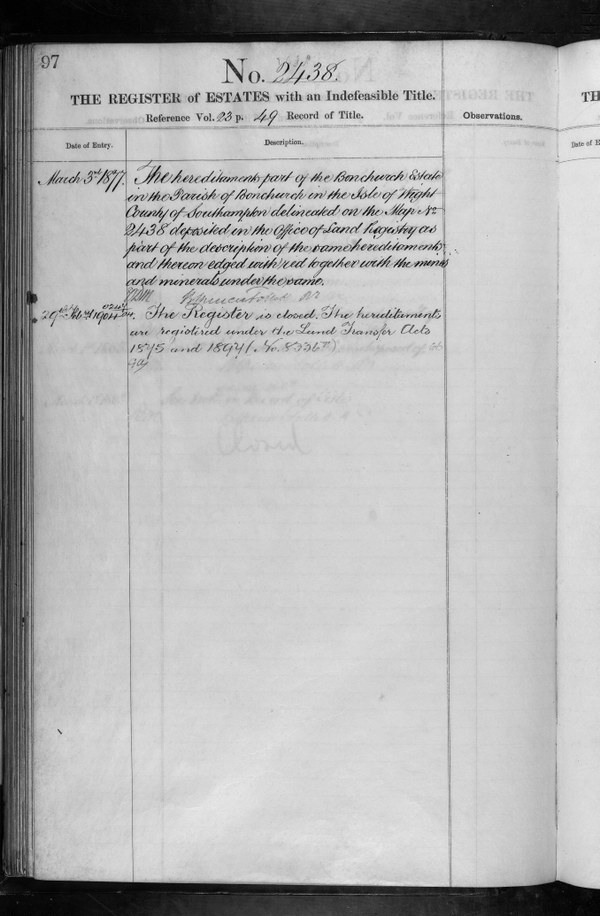 97
No. 2438.
THE REGISTER of ESTATES with an Indefeasible Title.
Reference Vol. 23 p. 49 Record of Title.
Observations.
Date of Entry.
Description.
March 3rd 1877.
The hereditaments part of the Bonchurch Estate
in the Parish of Bonchurch in the Isle of Wight
County of Southampton delineated on the Map No
2438 deposited in the Office of Land Registry as
part of the description of the same hereditaments
and thereon edged with red together with the mines
and minerals under the same.
29th Feb
The Register is closed. The hereditaments
are registered under the Land Transfer Acts
1875 and 1897 (No.
Closed
TH
Date of E